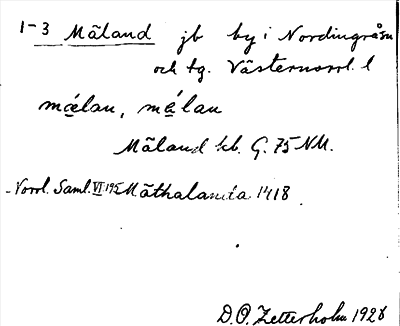 1-3 Måland jb by i Nordingrå sn
och tg. Västernorrl. l
mǻlan, mǻlan
Måland kb. G. 75 NM.
Norrl. Saml. VI 195 Måthalanda 1418
D.O. Zetterholm 1928